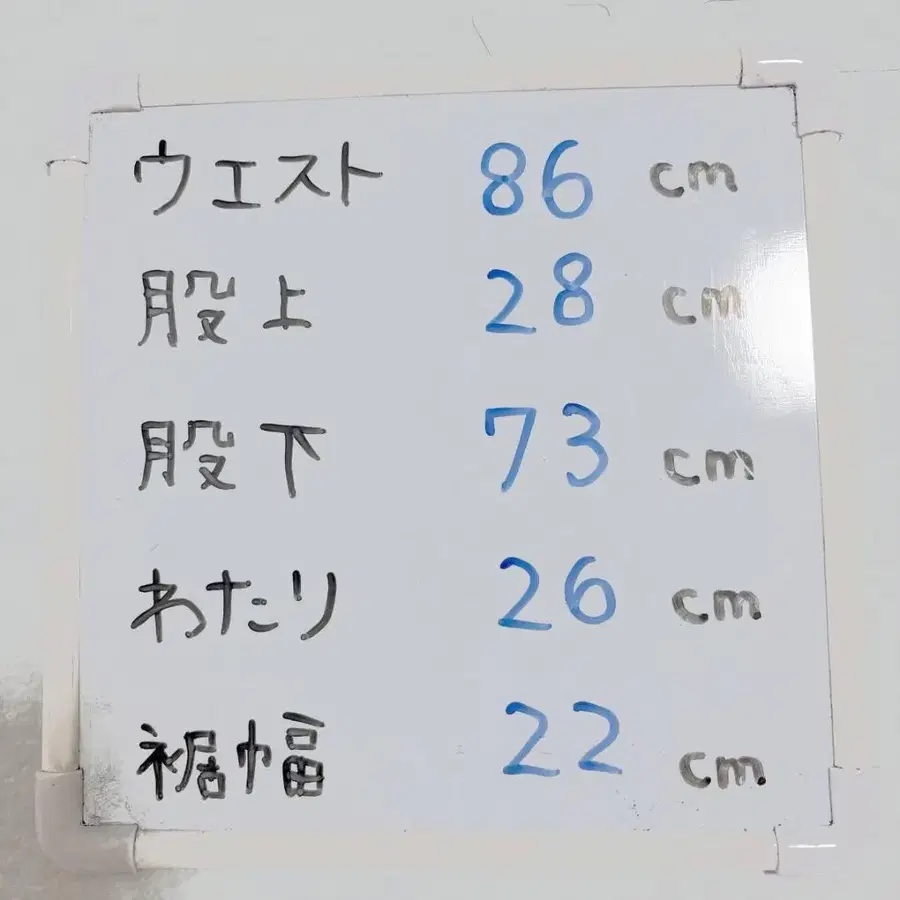 ウエスト 86 cm
股上 28 cm
股下 73 cm
わたり 26 cm
裾幅 22 cm